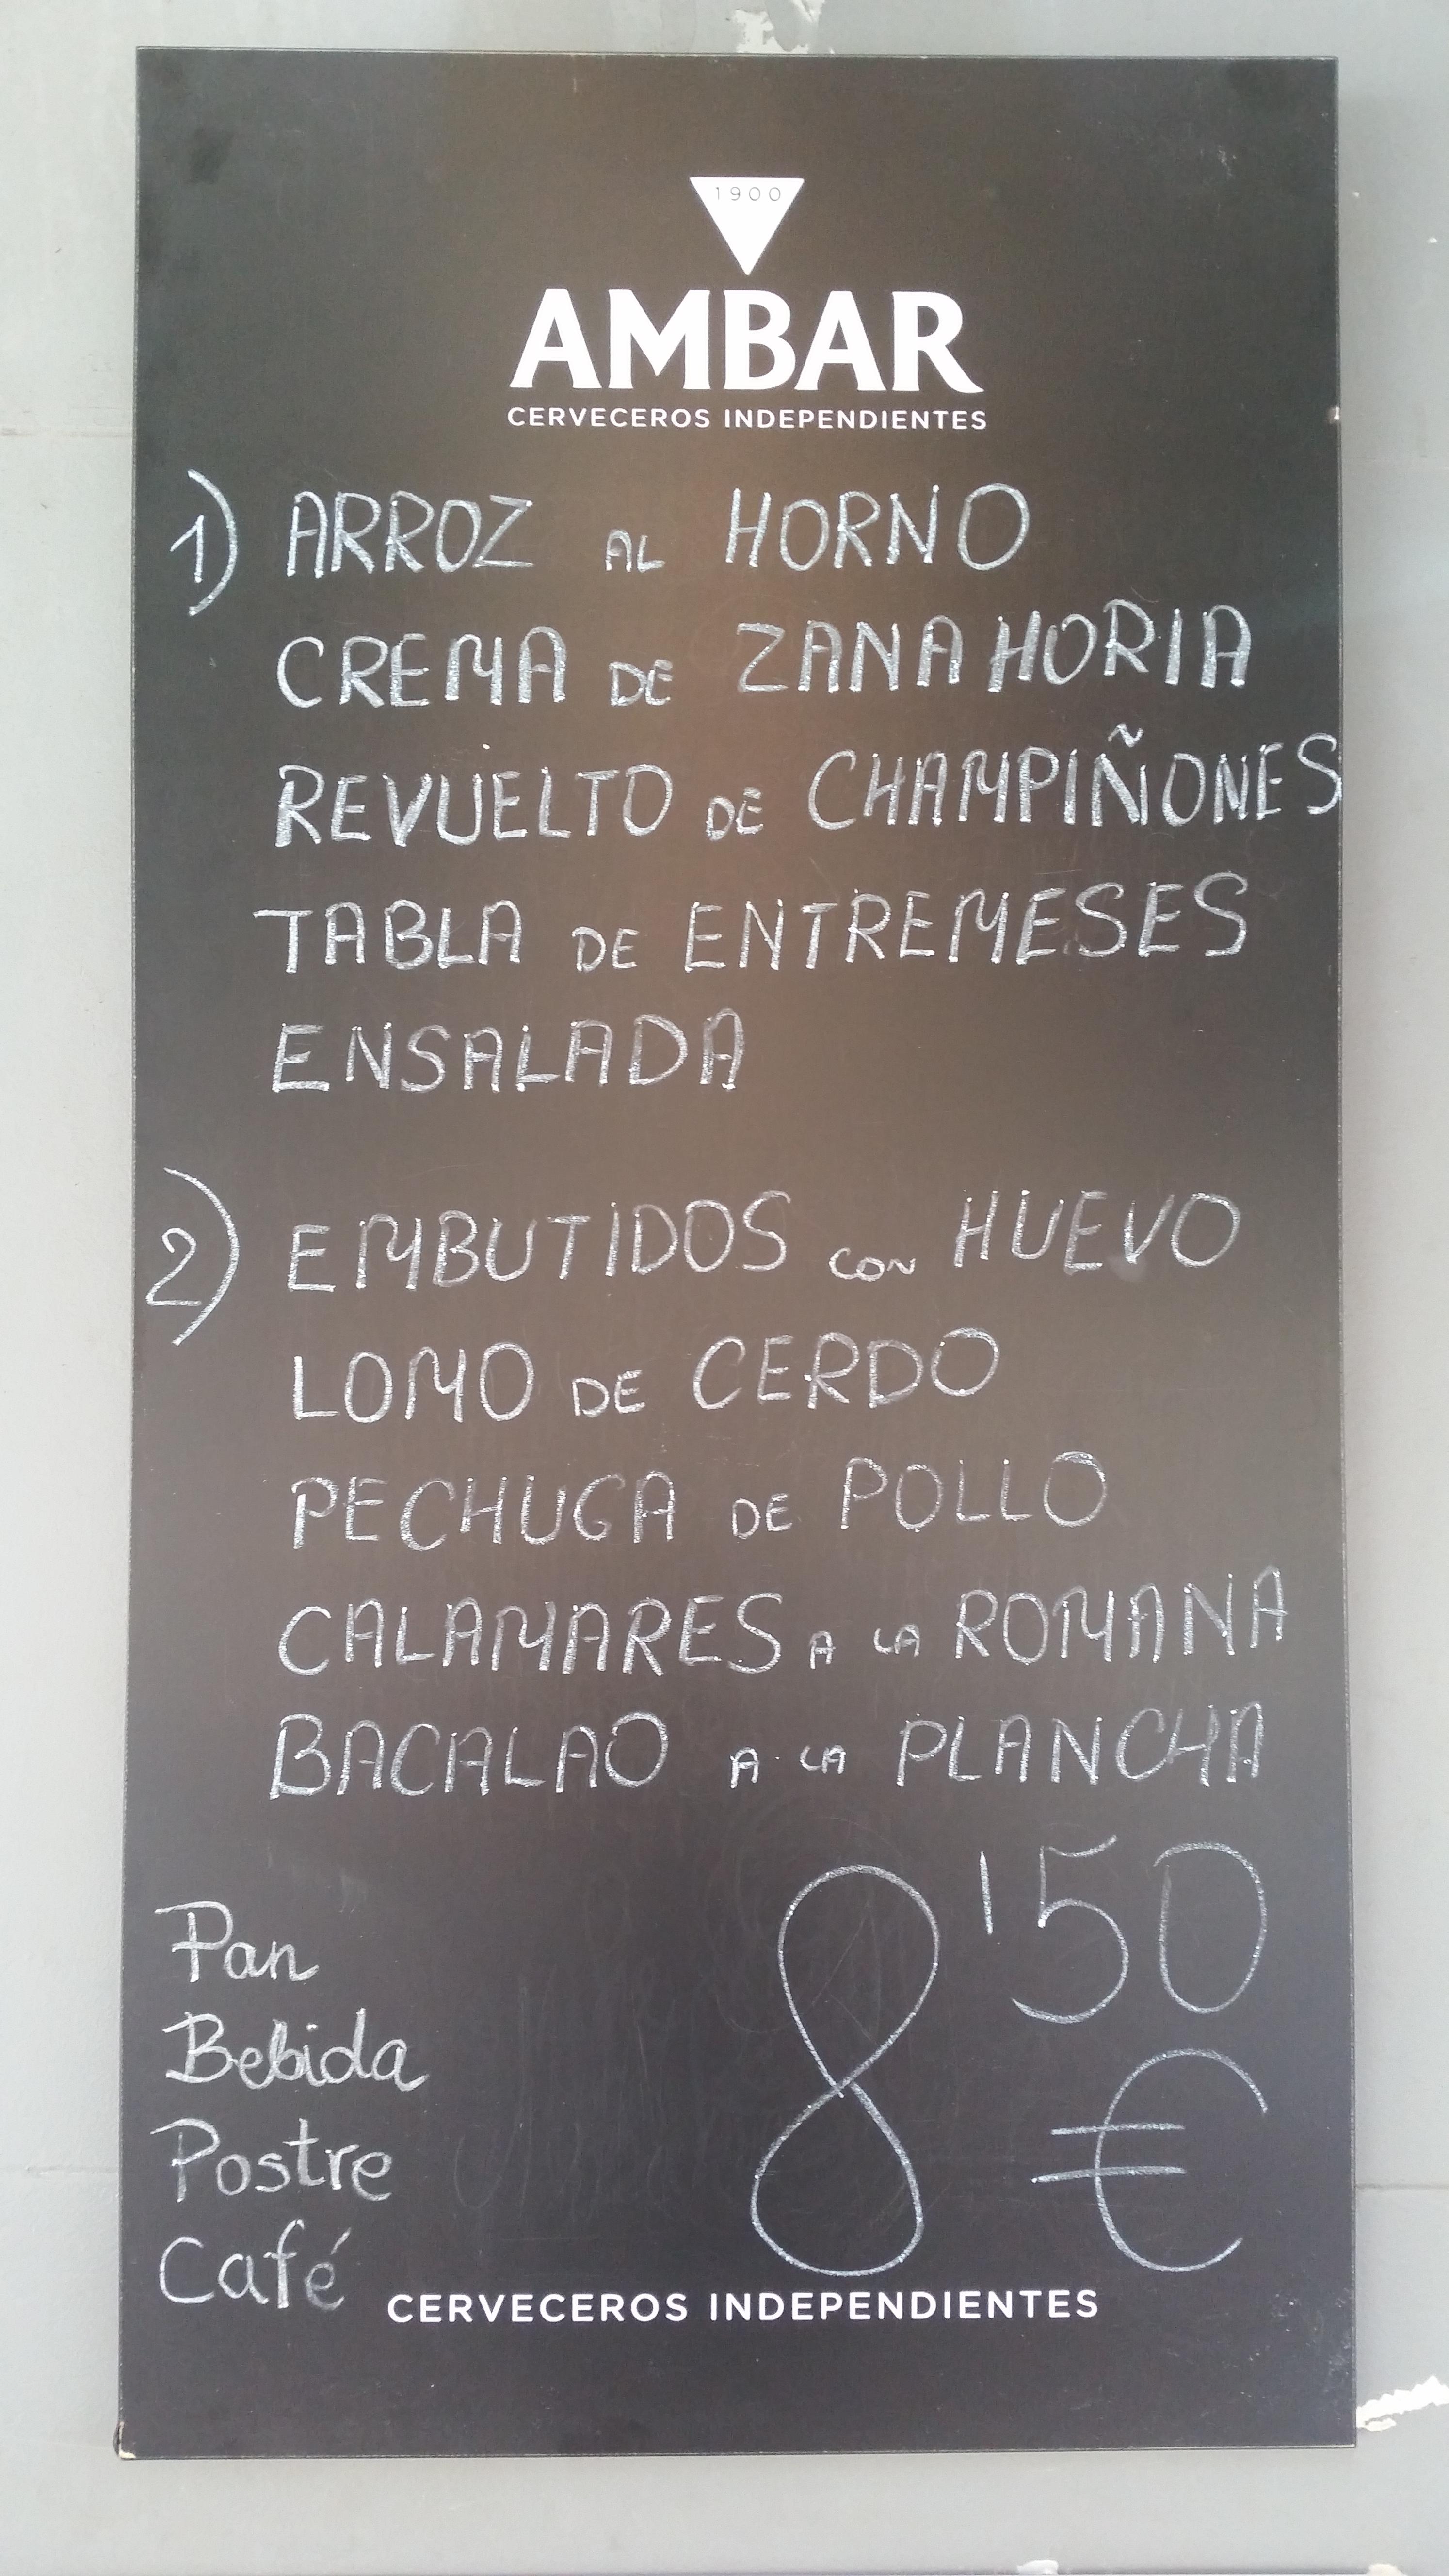 1900
AMBAR
CERVECEROS INDEPENDIENTES
1) ARROZ AL HORNO
CREMA DE ZANAHORIA
REVUELTO DE CHAMPIÑONES
TABLA DE ENTREMESES
ENSALADA
2) EMBUTIDOS CON HUEVO
LOMO DE CERDO
PECHUGA DE POLLO
CALAMARES A LA ROMANA
BACALAO A LA PLANCHA
Pan
Bebida
Postre
Café
8'50
€
CERVECEROS INDEPENDIENTES